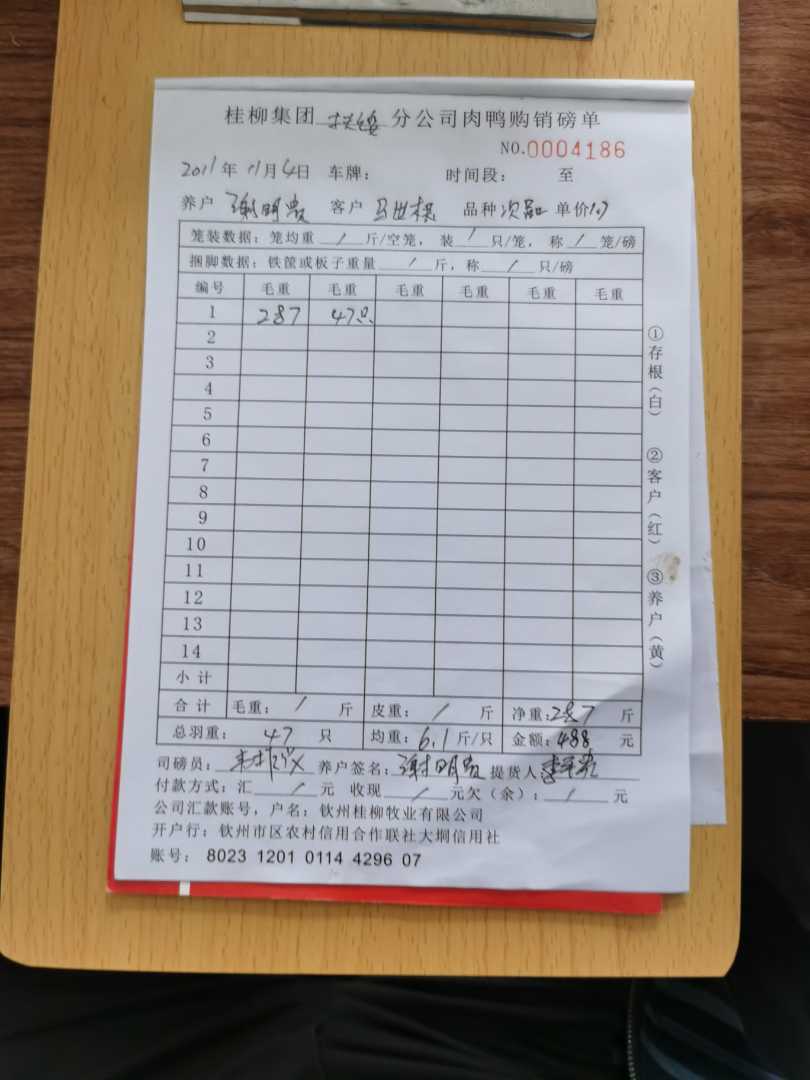 桂柳集团 分公司肉鸭购销磅单
NO.0004186
2011年 11月 4日 车牌: 时间段: 至
养户 谢明贵 客户 马世权 品种 次品 单价1.7
笼装数据: 笼均重 / 斤/空笼, 装 / 只/笼, 称 / 笼/磅
捆脚数据: 铁筐或板子重量 / 斤, 称 / 只/磅
编号 毛重 毛重 毛重 毛重 毛重 毛重
1 287 47只
2
3
4
5
6
7
8
9
10
11
12
13
14
小计
合计 毛重: / 斤 皮重: / 斤 净重:287 斤
总羽重: 47 只 均重: 6.1 斤/只 金额: 488 元
司磅员: 养户签名: 谢明贵 提货人
付款方式: 汇 / 元 收现 / 元欠(余): / 元
公司汇款账号, 户名: 钦州桂柳牧业有限公司
开户行: 钦州市区农村信用合作联社大垌信用社
账号: 8023 1201 0114 4296 07
①存根(白) ②客户(红) ③养户(黄)